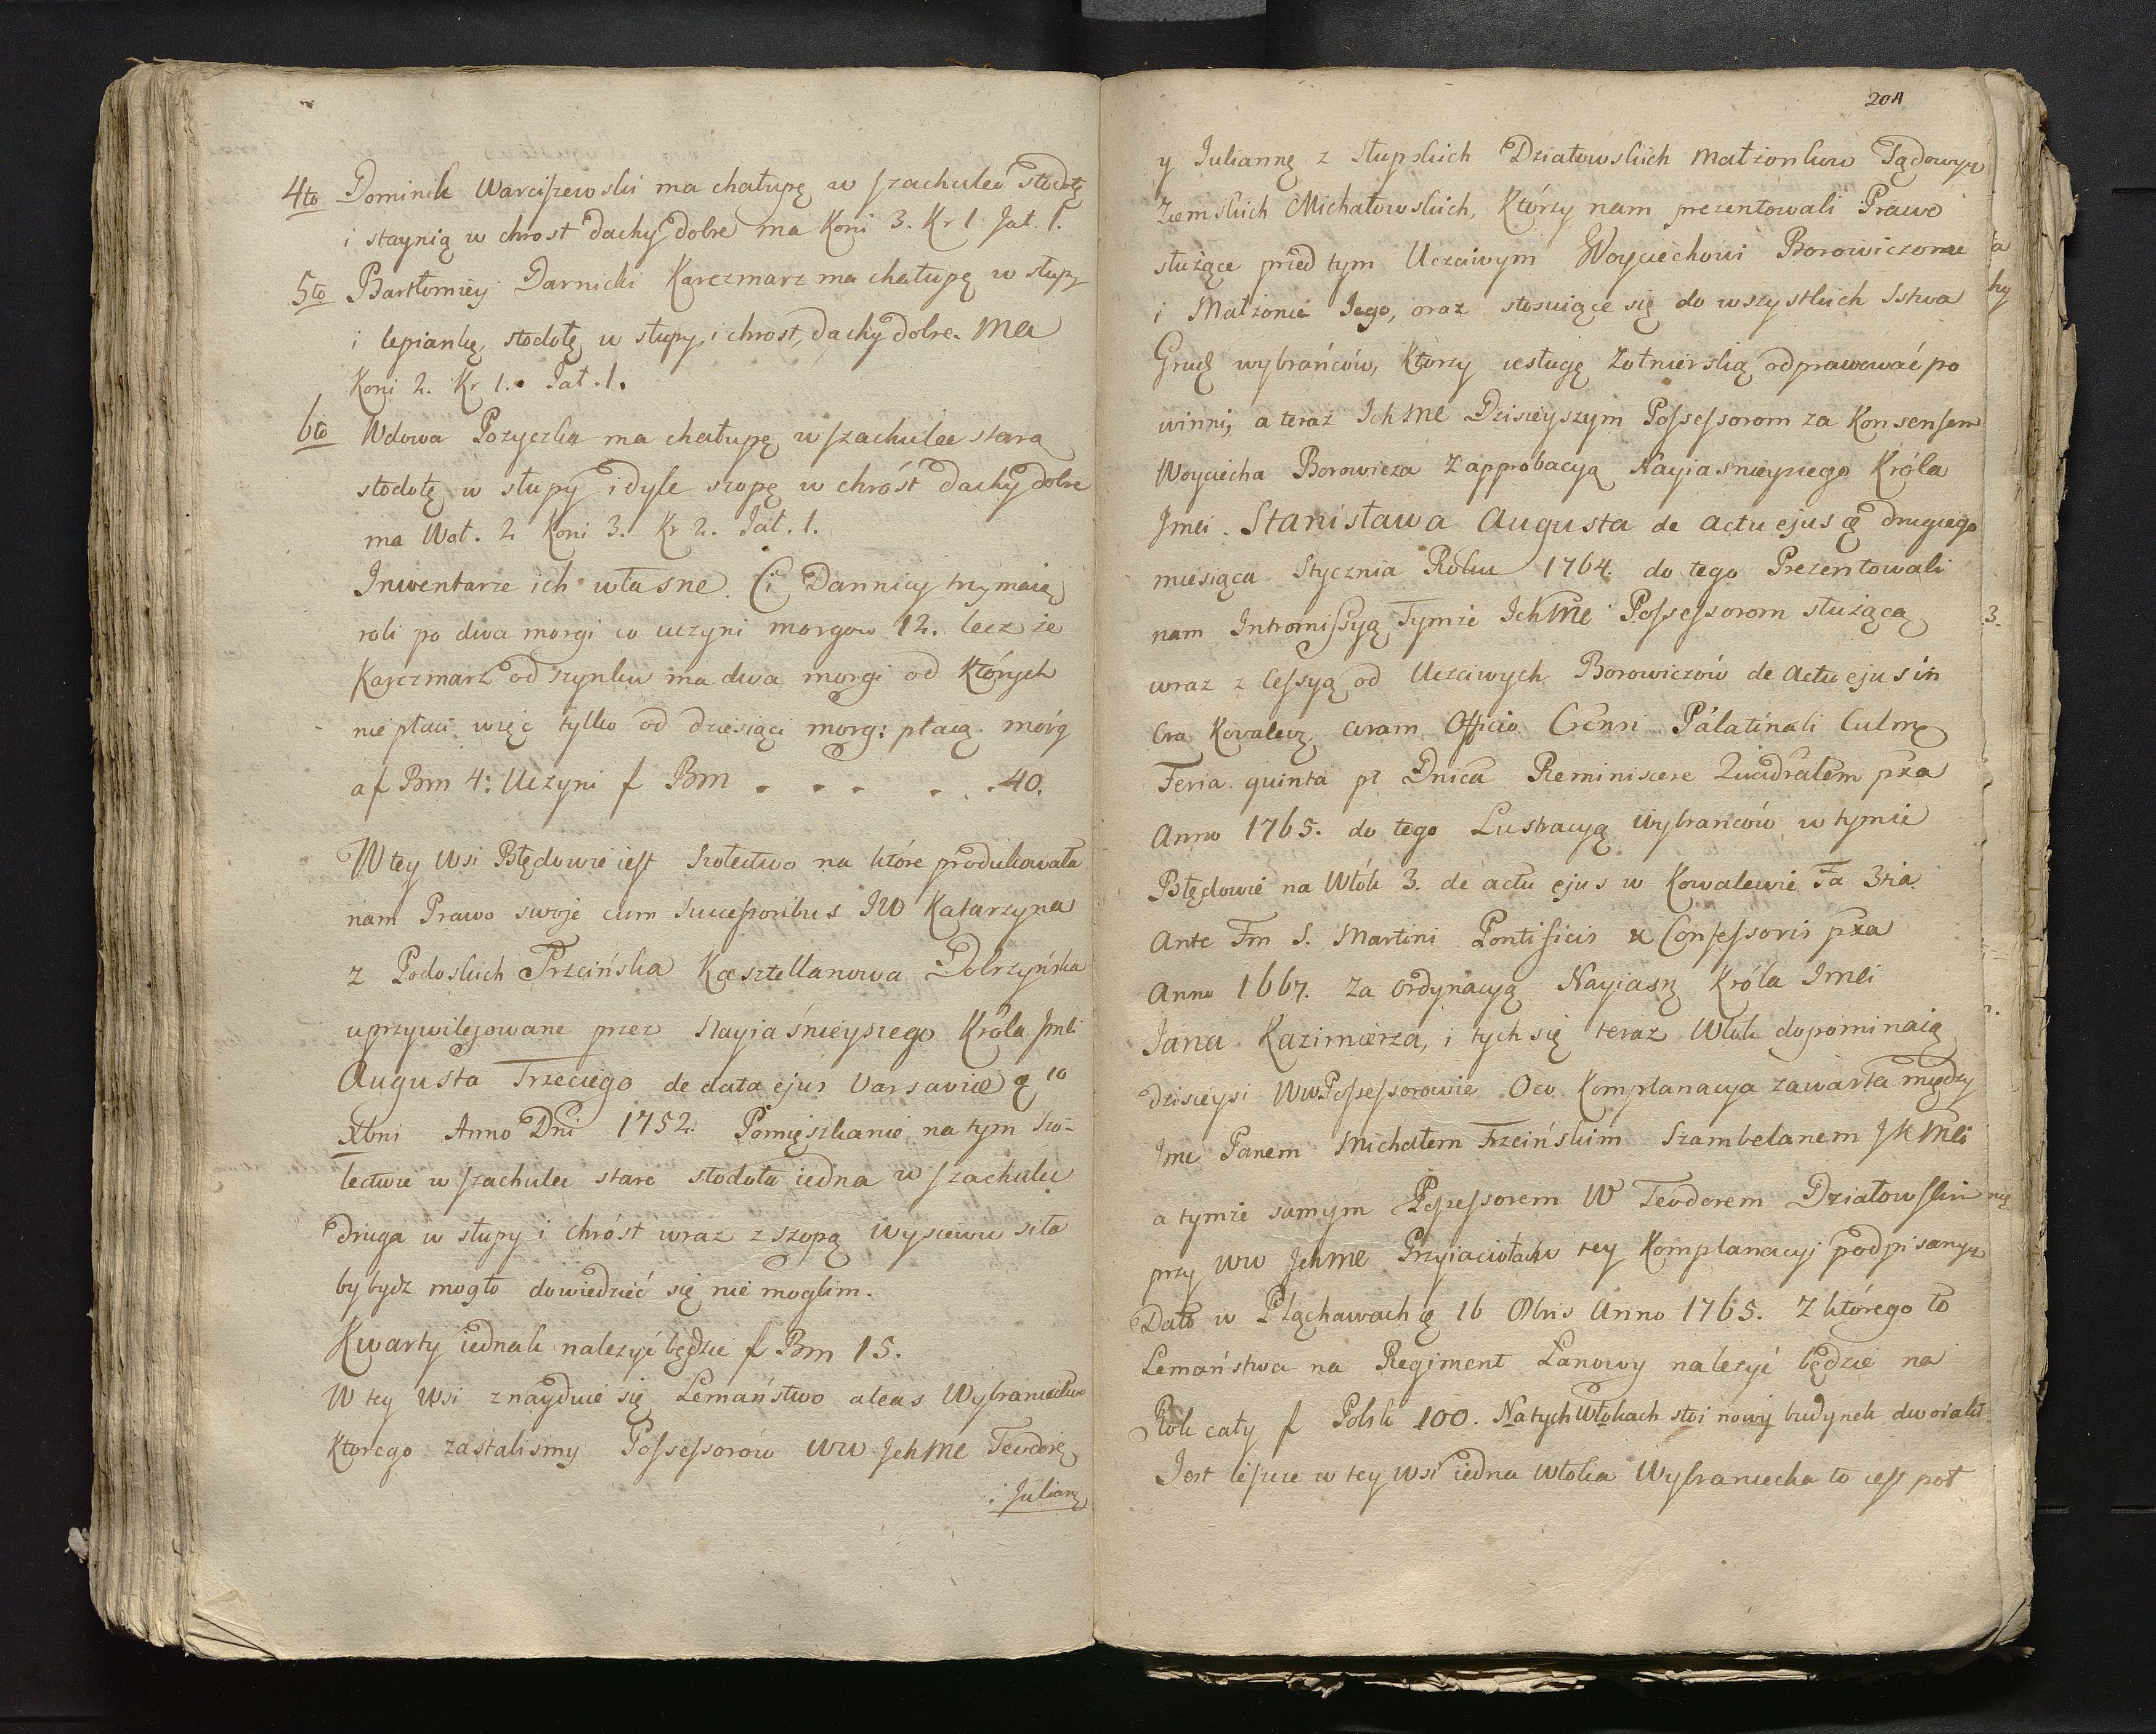 4to Dominik Warciszewski ma chałupę w szachulec stodołę
i staynią w chrost dachy dobre ma Koni 3. Kr 1 Jał. 1.
5to Bartłomiey Darnicki Karczmarz ma chałupę w słupy
i lepiankę, stodołę w słupy, i chrost, dachy dobre. Ma
Koni 2. Kr 1. Jał. 1.
6to Wdowa Pozyczka ma chałupę w szachulec starą
stodołę w słupy i dyle szopę w chróst dachy dobre
ma Woł. 2 Koni 3. Kr 2. Jał. 1.
Inwentarze ich własne. Ci Dannicy trzymaią
roli po dwa morgi co uczyni morgow 12. lecz że
Karczmarz od szynku ma dwa morgi od Których
nie płaci więc tylko od dziesiąci morg: płacą morg
a f Bm 4: Uczyni f Bm . . . . . 40.
W tey Wsi Błędowie iest Szołectwo na które produkowała
nam Prawo swoje cum Successoribus JW Katarzyna
z Podoskich Trzcińska Kasztellanowa Dobrzyńska
uprzywilejowane przez Nayiaśnieyszego Króla Jmći
Augusta Trzeciego de data ejus Varsaviæ 10
Xbris Anno Dni 1752. Pomięszkanie na tym Szo-
łectwie w szachulec stare stodoła iedna w szachulec
druga w słupy i chróst wraz z szopą wysiewu siła
by bydz mogło dowiedzieć się nie moglim.
Kwarty iednak nalezyć będzie f Bm 15.
W tey Wsi znayduie się Lemaństwo aleas Wybraniectwo
Ktorego zastalismy Possessorów WW Jchmć Teodorę
i Juliannę
204
y Juliannę z Słupskich Działowskich Małżonkow Sądowych
Ziemskich Michałowskich, Którzy nam prezentowali Prawo
służące przed tym Uczciwym Woyciechowi Borowiczowi
i Małżonce Jego, oraz stosuiące się do wszystkich Istwa
wybrańców, Którzy usługę Zołnierską odprawować po
winni, a teraz Ichmć Dzisieyszym Possessorom za Konsensem
Woyciecha Borowicza Z approbacyą Nayiasnieyszego Króla
Jmći. Stanisława Augusta de actu ejus drugiego
miesiąca Stycznia Roku 1764. do tego Prezentowali
nam Intromissyą Tymże Ichmć Possessorom służącą
wraz z Cessyą od Uczciwych Borowiczów de Actu ejus in
Kovalevien coram Officio Palatinali Culm
Feria quinta pt Dnica Reminiscere Quadralem pxa
Anno 1765. do tego Lustracyą Wybrańców w tymże
Błędowie na Włók 3. de actu ejus w Kowalewie Fa 3tia
Ante Fm S. Martini Pontificis & Confessoris pxa
Anno 1667. Za Ordynacyą Nayiasn Króla Jmći
Jana Kazimierza, i tych się teraz Włók dopominaią
dzisieysi WwPossessorowie Oco Komplanacya zawarta między
Jmć Panem Michałem Trzcińskim Szambelanem JKMći
a tymże samym Possessorem W Teodorem Działowskim
przy WW Jchmć Przyiaciołach tey Komplanacyi podpisanych
Dato w Płąchawach 16 Obris Anno 1765. Z którego to
Lemaństwa na Regiment Łanowy nalezyć będzie na
Rok cały f Polsk 100. Na tych Włokach stoi nowy budynek dwoiaki
Jest leszcze w tey Wsi iedna włoka Wybraniecka to iest poł